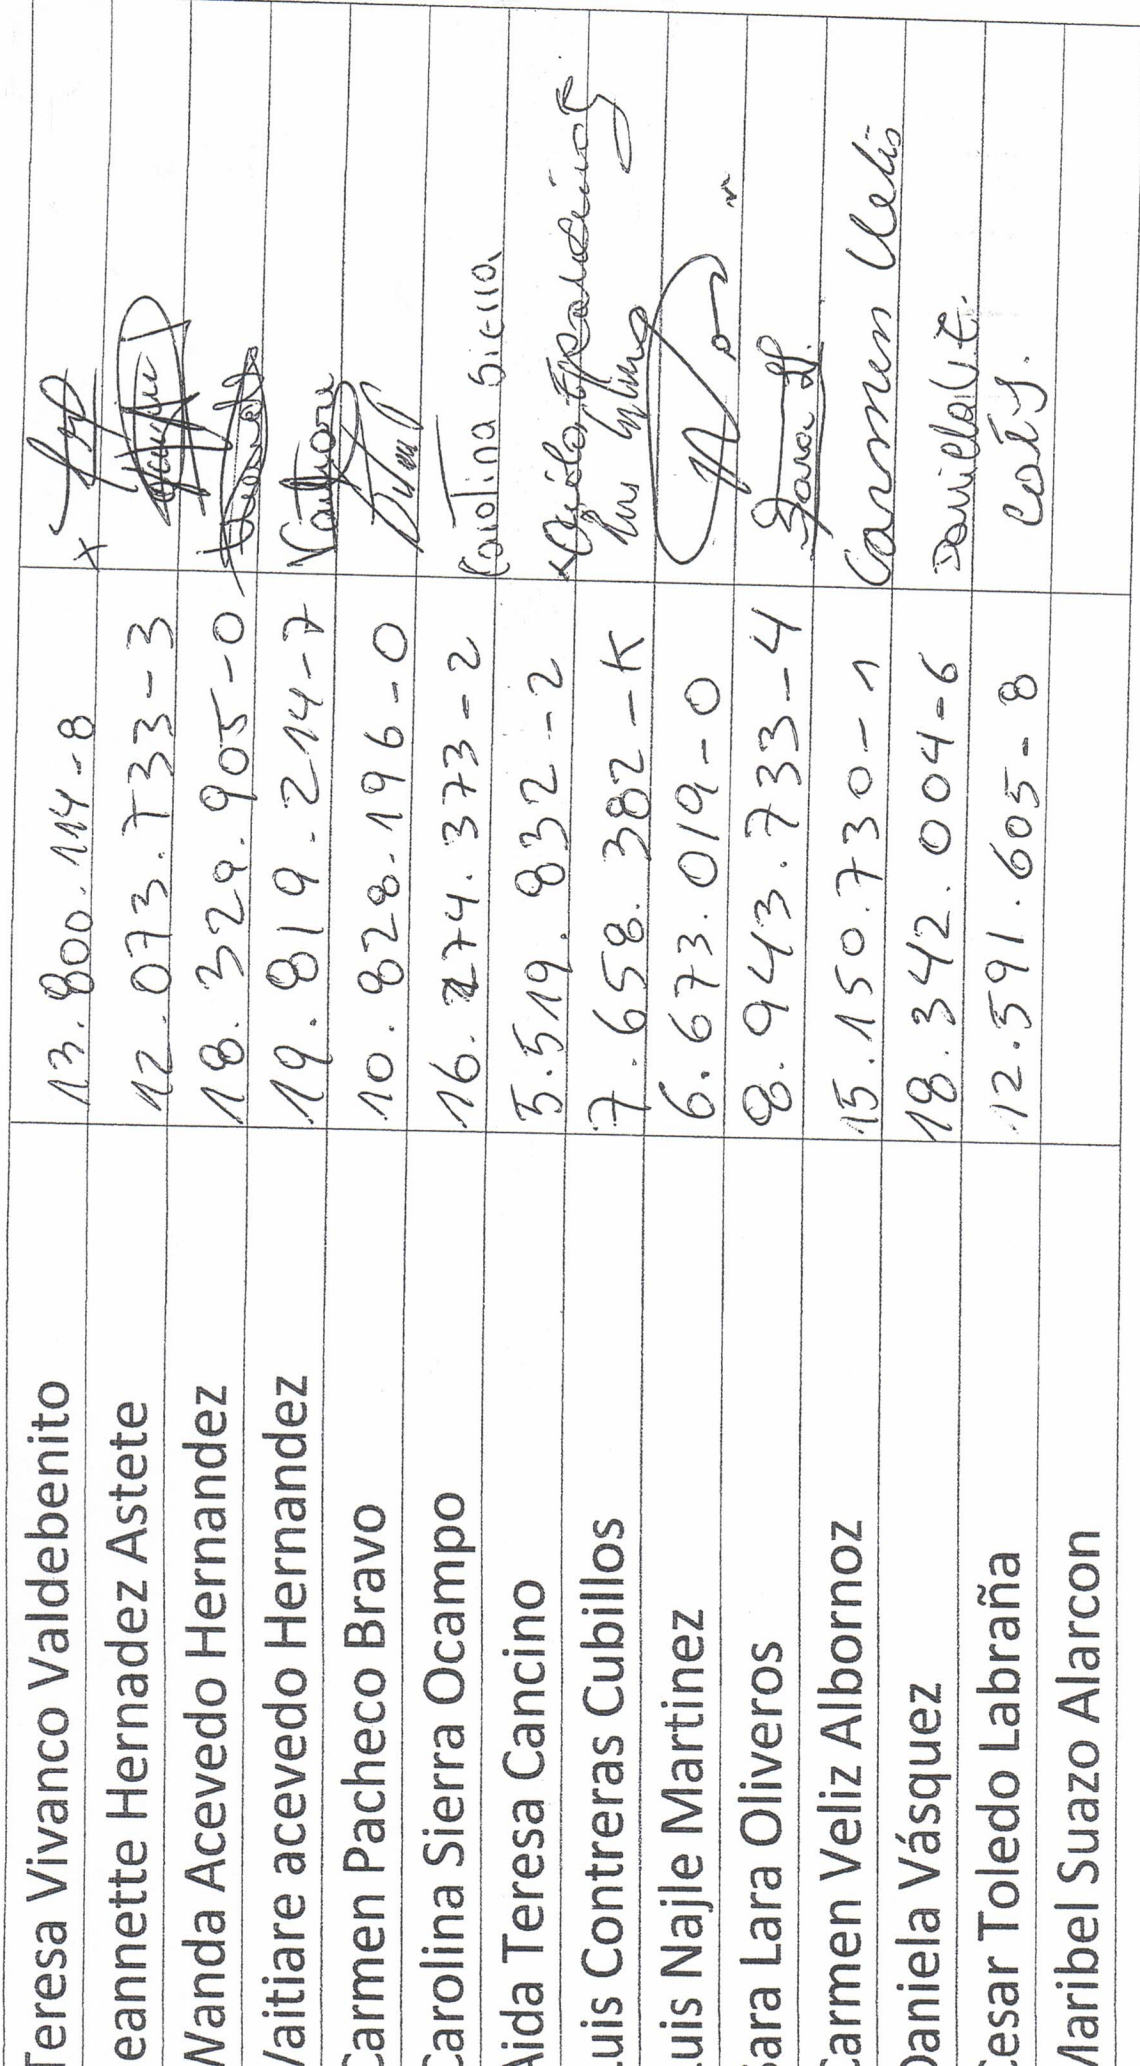 Teresa Vivanco Valdebenito 13.800.114-8
eannette Hernadez Astete 12.073.733-3
Wanda Acevedo Hernandez 18.329.905-0
Vaitiare acevedo Hernandez 19.819.214-7 Vaitiare
Carmen Pacheco Bravo 10.828.196-0
Carolina Sierra Ocampo 16.274.373-2 Carolina Sierra
Aida Teresa Cancino 5.519.832-2
Luis Contreras Cubillos 7.658.382-K Luis
Luis Najle Martinez 6.673.019-0
Sara Lara Oliveros 8.943.733-4 Sara
Carmen Veliz Albornoz 15.150.730-1 Carmen Velis
Daniela Vásquez 18.342.004-6
esar Toledo Labraña 12.591.605-8
Maribel Suazo Alarcon